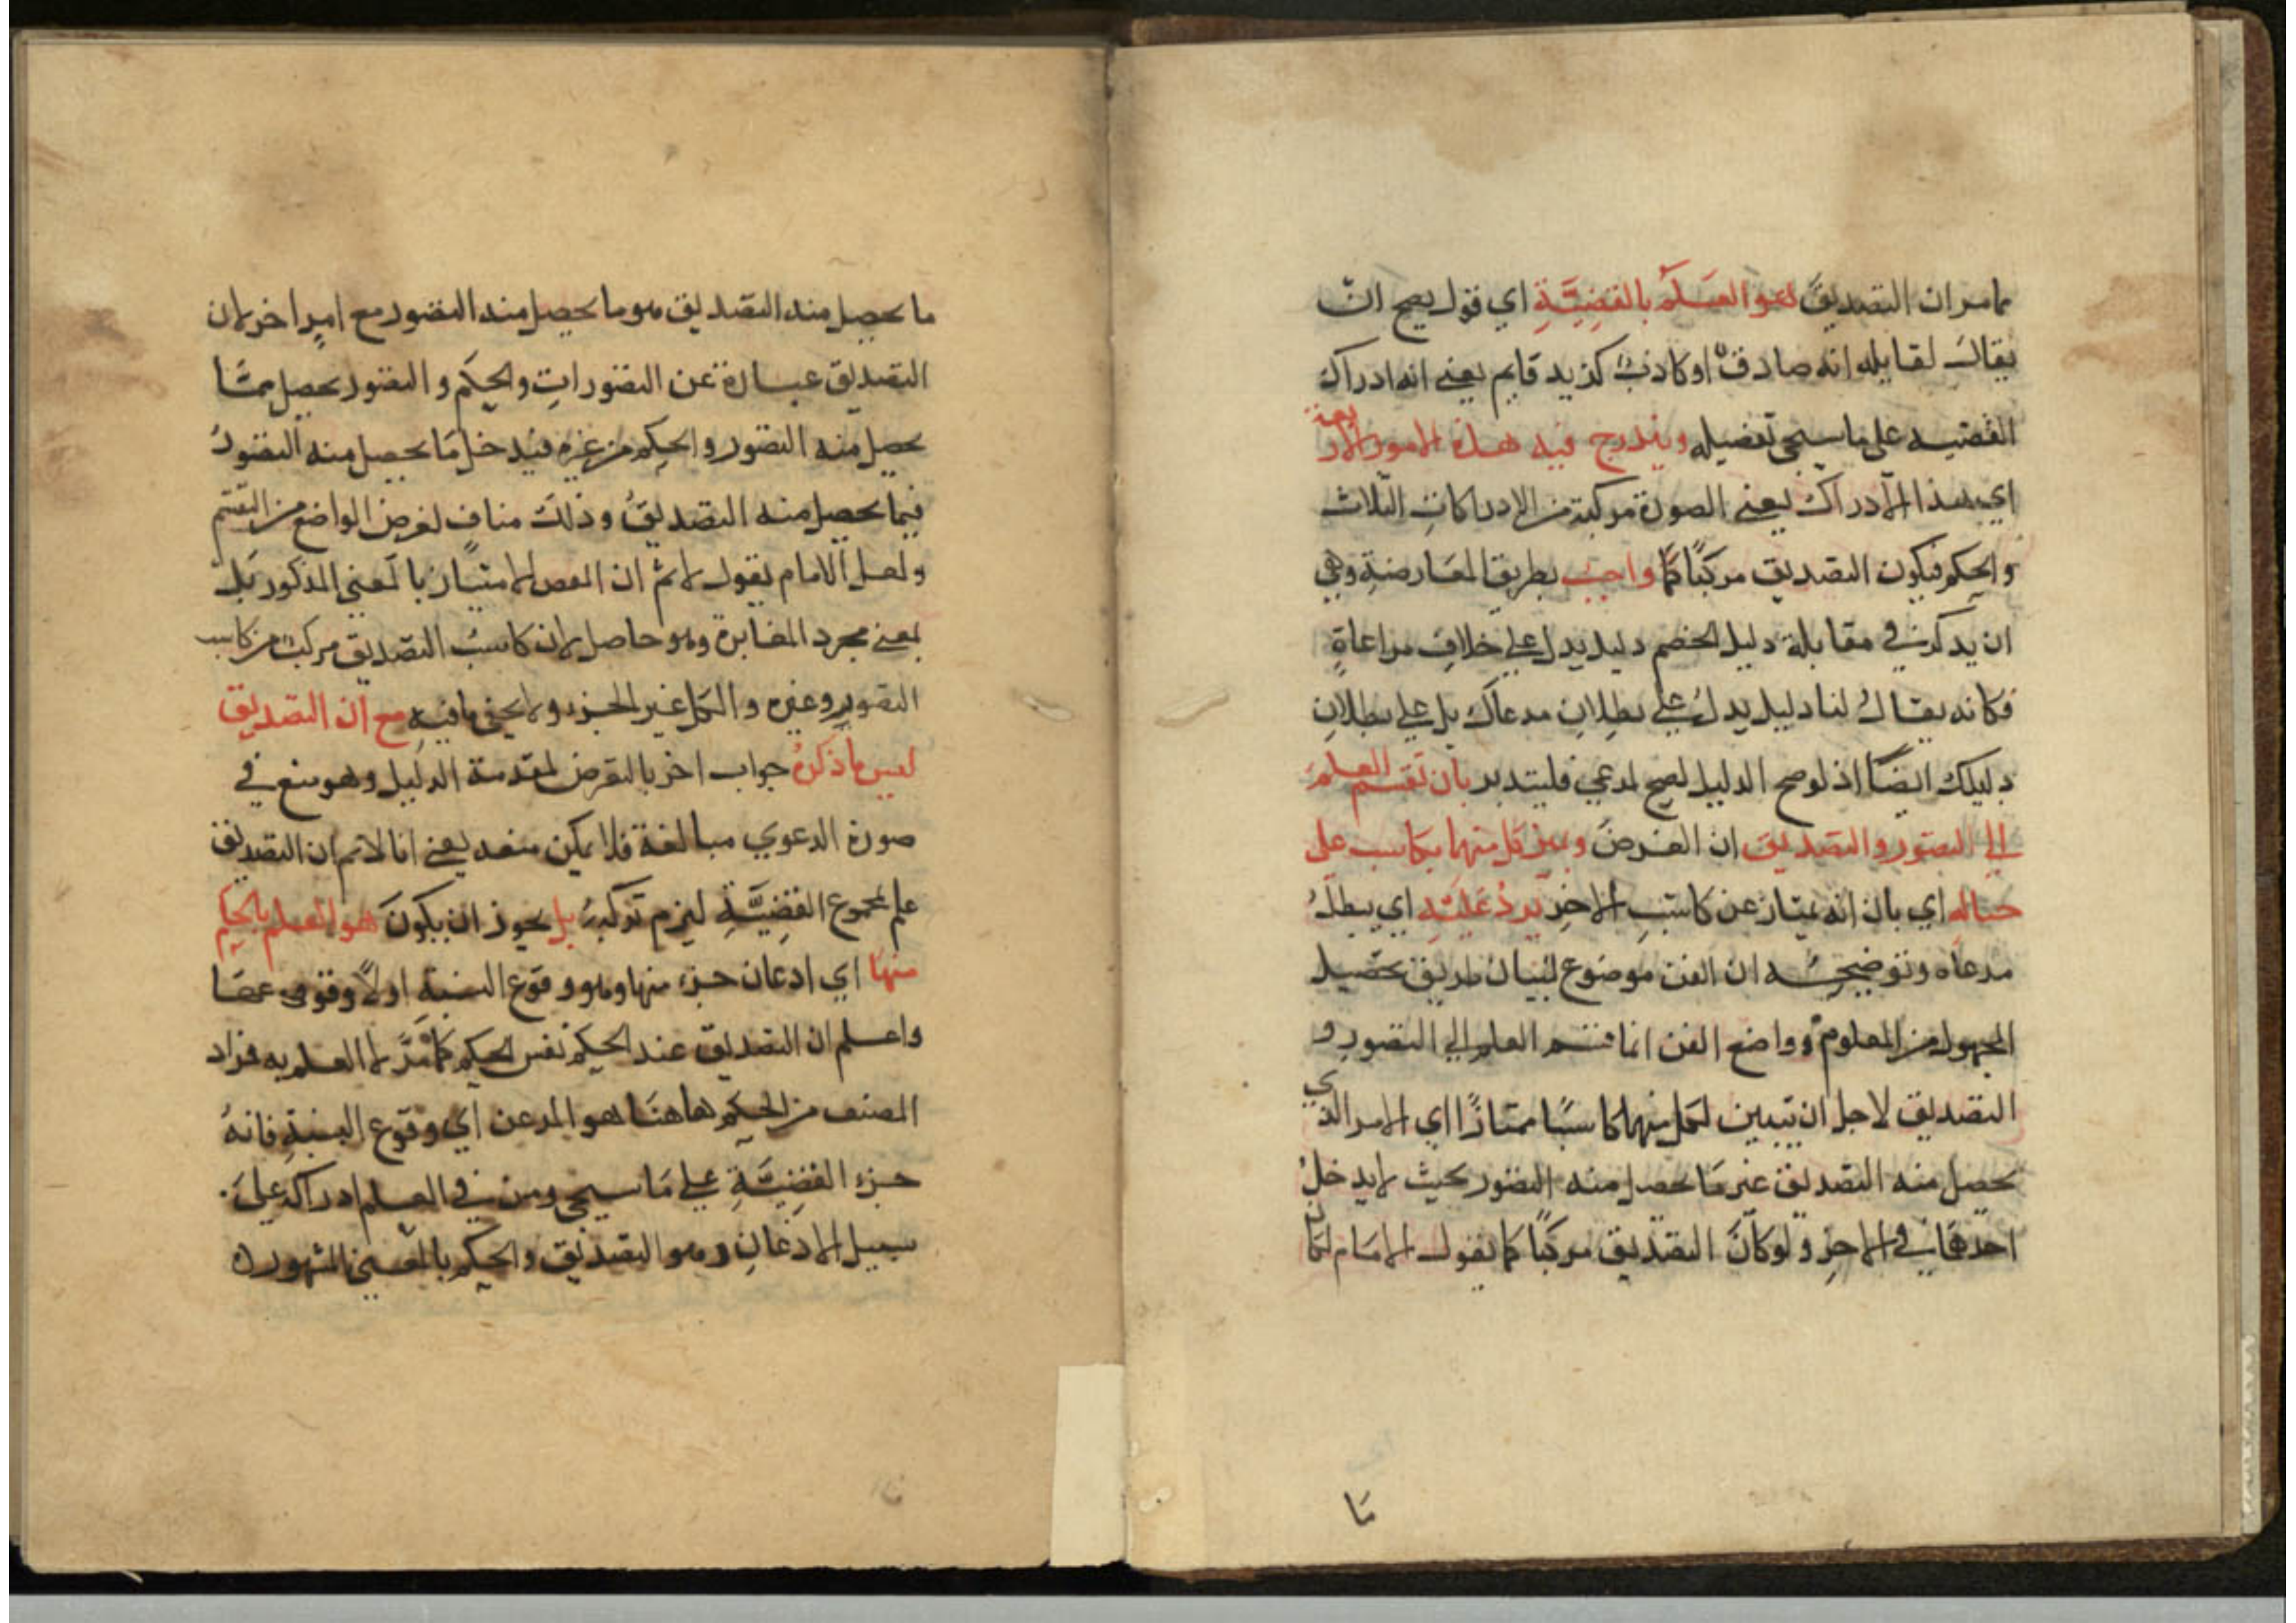 مامر ان التصديق هو العلم بالقضية اي قول يصح ان
يقال لقايله انه صادق او كاذب كزيد قايم يعني انه ادراك
القضيه على ما سيجي تفضيله ويندرج فيه هذه الامور الاربعة
اي بهذا الادراك يعني الصورة مركبة من الادراكات الثلاث
والحكم فيكون التصديق مركبًا كما واجب بطريق المعارضة وهي
ان يذكر في مقابلة دليل الخصم دليل يدل على خلاف مراعاة
فكانه يقال لنا دليل يدل على بطلان مدعاك بل على بطلان
دليلك ايضًا اذ لوصح الدليل لصح لمدعي فليتدبر بان تقسم العلم
الي التصور والتصديق ان الغرض وميز كل منهما بكاسب على
حياله اي بان انه يمتاز عن كاسب الاخر يرد عليه اي يبطله
مدعاه وتوضيحه ان الفن موضوع لبيان طريق تحصيل
المجهول من المعلوم وواضع الفن انما قسم العلم الي التصور و
التصديق لاجل ان تبيين لكل منهما كاسبًا ممتازًا اي الامر الذي
يحصل منه التصديق غير ما يحصل منه التصور بحيث لا يدخل
احدهما في الاخر ولو كان التصديق مركبًا كما يقول الامام لكان
مَا
ما يحصل منه التصديق هو ما يحصل منه التصور مع امر اخر لان
التصديق عبارة عن التصورات والحكم و التصور يحصل مما
يحصل منه التصور والحكم من غيره فيدخل ما يحصل منه التصور
فيما يحصل منه التصديق وذلك مناف لغرض الواضع من التقسيم
ولعل الامام يقول لانم ان الغرض الامتياز بالمعني المذكور بل
بمعنى مجرد المغايرة وهو حاصل لان كاسب التصديق مركب من كاسب
التصور وغيره والكل غير الجزء ولا يخفي ما فيه مع ان التصديق
ليس ما ذكره جواب اخر بالتعرض لمقدمة الدليل وهو منع في
صورة الدعوي مبالغة فلا يمكن منعه يعني انا لا نم ان التصديق
علم بمجموع القضية ليزم تركبه بل يجوز ان يكون هو العلم بالحكم
منها اي ادعان جزء منها وهو وقوع النسبة او لا وقوعها
واعلم ان التصديق عند الحكيم نفس الحكم كما مر لا العلم به فراد
المصنف من الحكم هاهنا هو المدعن اي وقوع النسبة فانه
جزء القضية علي ما سيجي ومن في العلم ادراكه على
سبيل الاذعان وهو التصديق والحكم بالمعني المشهور